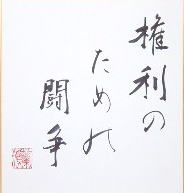 権利の
ための
闘争